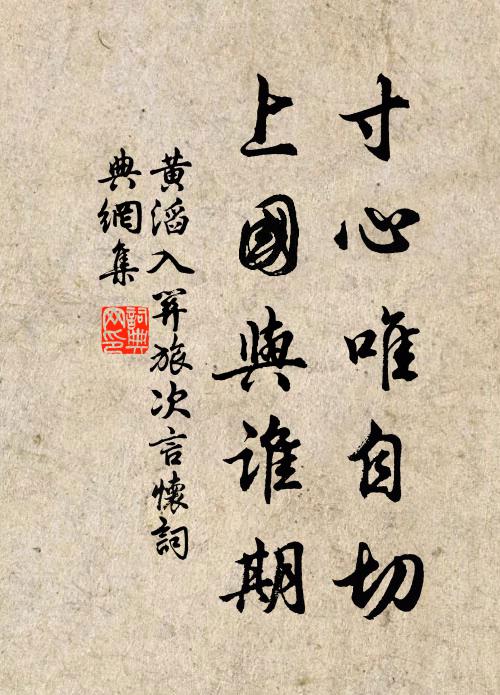 寸心唯自切
上國與誰期
黃滔入關旅次言懷詞
典網集
詞典網印